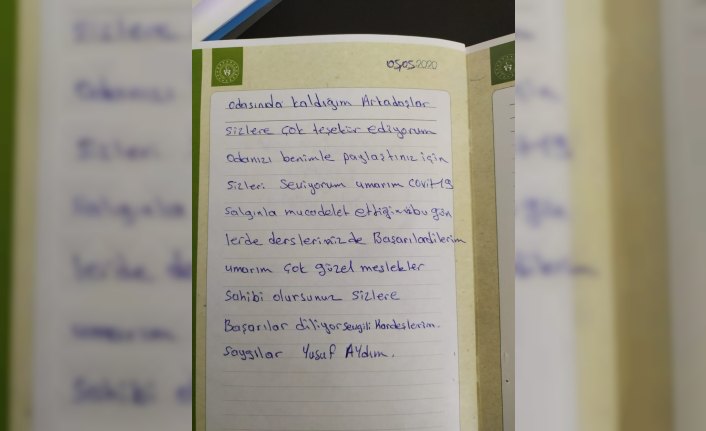 05.05.2020
odasında kaldığım Arkadaşlar
sizlere çok teşekür ediyorum
odanızı benimle paylaştınız için
sizleri seviyorum umarım covit-19
salgınla mucadelet ettiğiniz bu gün
lerde derslerinizde Başarılardilerim
umarım çok güzel meslekler
sahibi olursunuz sizlere
Başarılar diliyor sevgili Kardeşlerim.
saygılar Yusuf AYdım.